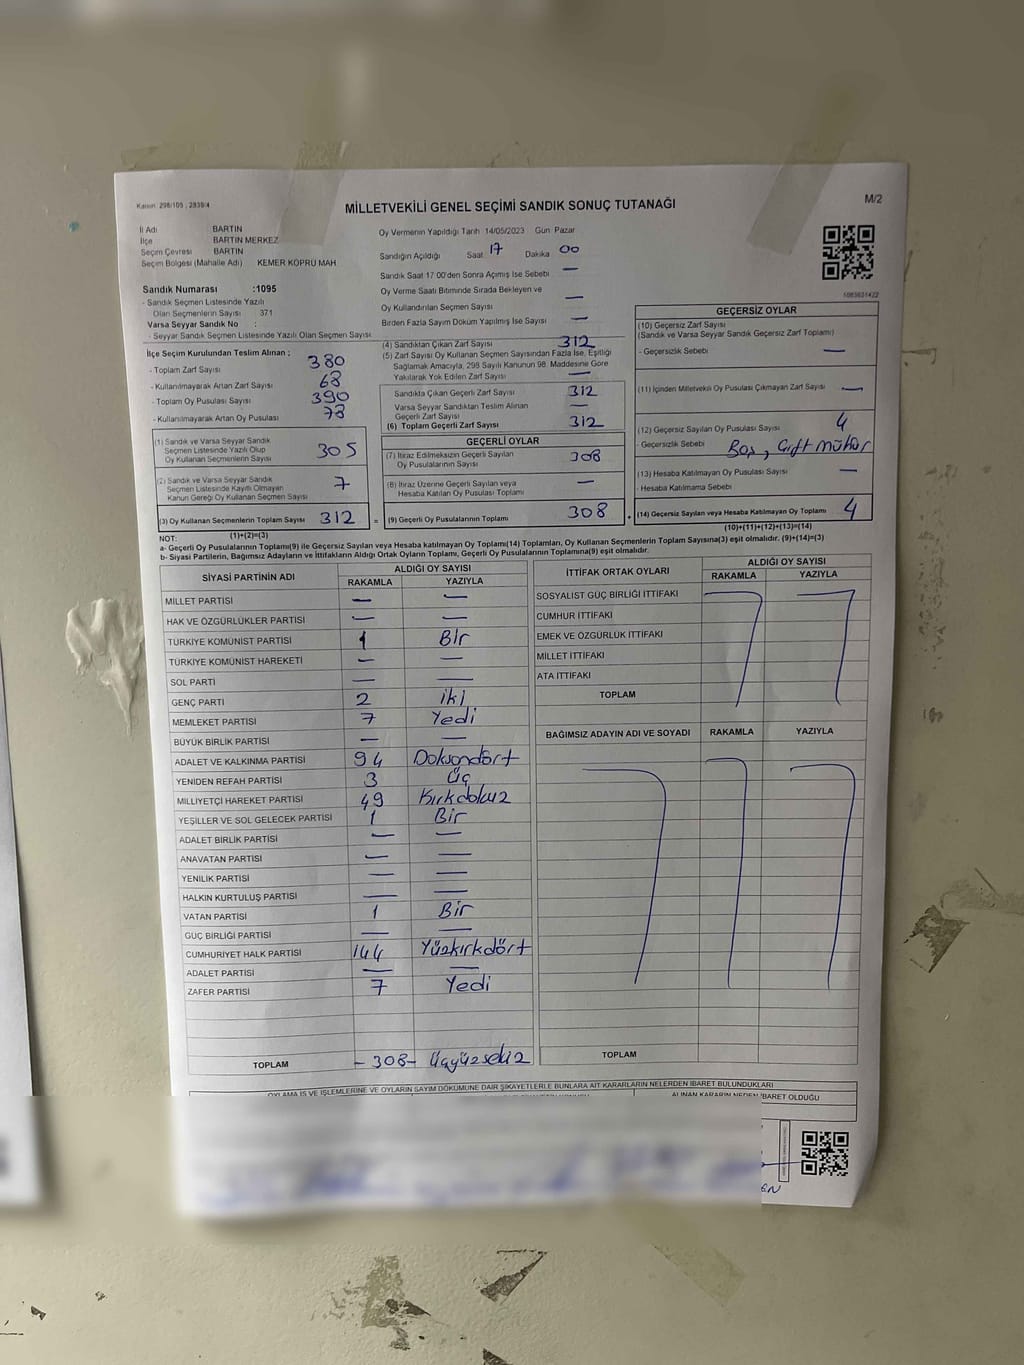 Kanun: 298/105 , 2839/4
MİLLETVEKİLİ GENEL SEÇİMİ SANDIK SONUÇ TUTANAĞI
M/2
İl Adı BARTIN
İlçe BARTIN MERKEZ
Seçim Çevresi BARTIN
Seçim Bölgesi (Mahalle Adı) KEMER KÖPRÜ MAH
Sandık Numarası :1095
- Sandık Seçmen Listesinde Yazılı
Olan Seçmenlerin Sayısı 371
Varsa Seyyar Sandık No :
- Seyyar Sandık Seçmen Listesinde Yazılı Olan Seçmen Sayısı
Oy Vermenin Yapıldığı Tarih 14/05/2023 Gün Pazar
Sandığın Açıldığı Saat 17 Dakika 00
Sandık Saat 17 00'den Sonra Açımış İse Sebebi —
Oy Verme Saati Bitiminde Sırada Bekleyen ve
Oy Kullandırılan Seçmen Sayısı —
Birden Fazla Sayım Döküm Yapılmış İse Sayısı —
1083631422
İlçe Seçim Kurulundan Teslim Alınan ;
- Toplam Zarf Sayısı 380
- Kullanılmayarak Artan Zarf Sayısı 68
- Toplam Oy Pusulası Sayısı 390
- Kullanılmayarak Artan Oy Pusulası 78
(1) Sandık ve Varsa Seyyar Sandık
Seçmen Listesinde Yazılı Olup
Oy Kullanan Seçmenlerin Sayısı 305
(2) Sandık ve Varsa Seyyar Sandık
Seçmen Listesinde Kayıtlı Olmayan
Kanun Gereği Oy Kullanan Seçmen Sayısı 7
(3) Oy Kullanan Seçmenlerin Toplam Sayısı 312 =
(1)+(2)=(3)
(4) Sandıktan Çıkan Zarf Sayısı 312
(5) Zarf Sayısı Oy Kullanan Seçmen Sayısından Fazla İse, Eşitliği
Sağlamak Amacıyla, 298 Sayılı Kanunun 98. Maddesine Göre
Yakılarak Yok Edilen Zarf Sayısı —
Sandıkta Çıkan Geçerli Zarf Sayısı 312
Varsa Seyyar Sandıktan Teslim Alınan
Geçerli Zarf Sayısı —
(6) Toplam Geçerli Zarf Sayısı 312
GEÇERLİ OYLAR
(7) İtiraz Edilmeksizin Geçerli Sayılan
Oy Pusulalarının Sayısı 308
(8) İtiraz Üzerine Geçerli Sayılan veya
Hesaba Katılan Oy Pusulası Toplamı —
(9) Geçerli Oy Pusulalarının Toplamı 308 +
GEÇERSİZ OYLAR
(10) Geçersiz Zarf Sayısı
(Sandık ve Varsa Seyyar Sandık Geçersiz Zarf Toplamı)
- Geçersizlik Sebebi —
(11) İçinden Milletvekili Oy Pusulası Çıkmayan Zarf Sayısı —
(12) Geçersiz Sayılan Oy Pusulası Sayısı 4
- Geçersizlik Sebebi Boş, Çift mühür
(13) Hesaba Katılmayan Oy Pusulası Sayısı —
- Hesaba Katılmama Sebebi
(14) Geçersiz Sayılan veya Hesaba Katılmayan Oy Toplamı 4
(10)+(11)+(12)+(13)=(14)
NOT:
a- Geçerli Oy Pusulalarının Toplamı(9) ile Geçersiz Sayılan veya Hesaba katılmayan Oy Toplamı(14) Toplamları, Oy Kullanan Seçmenlerin Toplam Sayısına(3) eşit olmalıdır. (9)+(14)=(3)
b- Siyasi Partilerin, Bağımsız Adayların ve İttifakların Aldığı Ortak Oyların Toplamı, Geçerli Oy Pusulalarının Toplamına(9) eşit olmalıdır.
SİYASİ PARTİNİN ADI ALDIĞI OY SAYISI
RAKAMLA YAZIYLA
MİLLET PARTİSİ — —
HAK VE ÖZGÜRLÜKLER PARTİSİ — —
TÜRKİYE KOMÜNİST PARTİSİ 1 Bir
TÜRKİYE KOMÜNİST HAREKETİ — —
SOL PARTİ — —
GENÇ PARTİ 2 iki
MEMLEKET PARTİSİ 7 Yedi
BÜYÜK BİRLİK PARTİSİ — —
ADALET VE KALKINMA PARTİSİ 94 Doksandört
YENİDEN REFAH PARTİSİ 3 Üç
MİLLİYETÇİ HAREKET PARTİSİ 49 Kırkdokuz
YEŞİLLER VE SOL GELECEK PARTİSİ 1 Bir
ADALET BİRLİK PARTİSİ — —
ANAVATAN PARTİSİ — —
YENİLİK PARTİSİ — —
HALKIN KURTULUŞ PARTİSİ — —
VATAN PARTİSİ 1 Bir
GÜÇ BİRLİĞİ PARTİSİ — —
CUMHURİYET HALK PARTİSİ 144 Yüzkırkdört
ADALET PARTİSİ — —
ZAFER PARTİSİ 7 Yedi
TOPLAM -308- Üçyüzsekiz
İTTİFAK ORTAK OYLARI ALDIĞI OY SAYISI
RAKAMLA YAZIYLA
SOSYALİST GÜÇ BİRLİĞİ İTTİFAKI
CUMHUR İTTİFAKI
EMEK VE ÖZGÜRLÜK İTTİFAKI
MİLLET İTTİFAKI
ATA İTTİFAKI
TOPLAM
BAĞIMSIZ ADAYIN ADI VE SOYADI RAKAMLA YAZIYLA
TOPLAM
OYLAMA İŞ VE İŞLEMLERİNE VE OYLARIN SAYIM DÖKÜMÜNE DAİR ŞİKAYETLERLE BUNLARA AİT KARARLARIN NELERDEN İBARET BULUNDUKLARI
ALINAN KARARIN NEDEN İBARET OLDUĞU